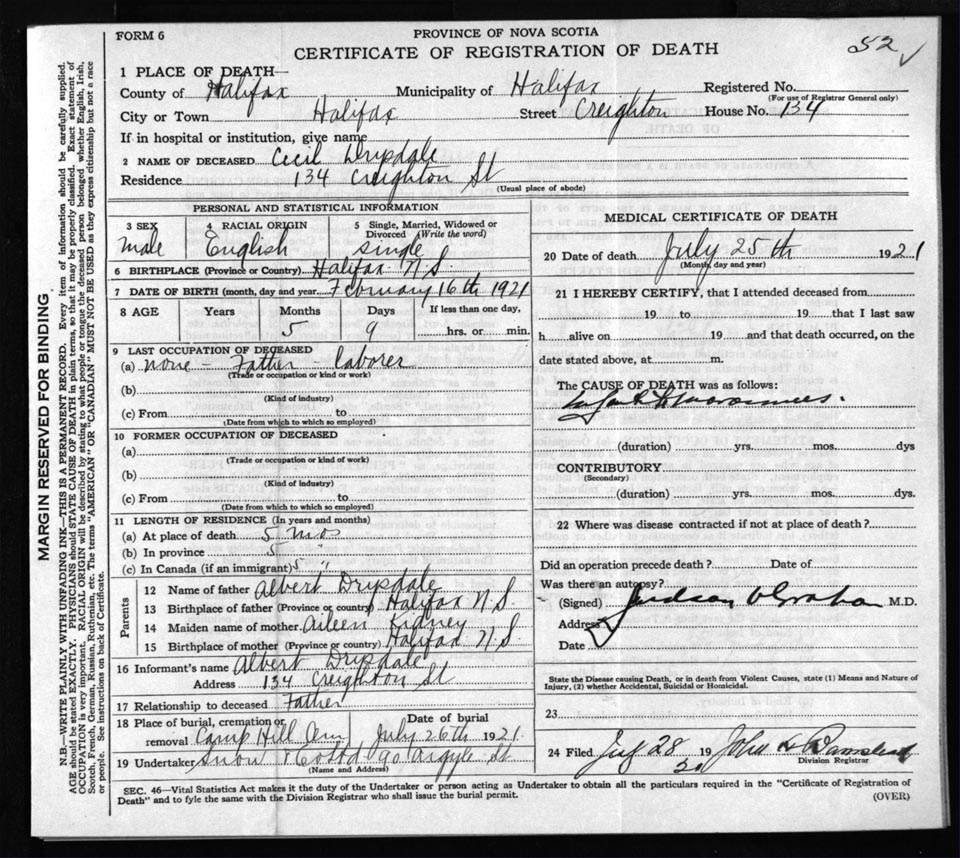 FORM 6
PROVINCE OF NOVA SCOTIA
CERTIFICATE OF REGISTRATION OF DEATH
52
1 PLACE OF DEATH—
County of Halifax Municipality of Halifax Registered No.
(For use of Registrar General only)
City or Town Halifax Street Creighton House No. 134
If in hospital or institution, give name
2 NAME OF DECEASED Cecil Drysdale
Residence 134 Creighton St
(Usual place of abode)
PERSONAL AND STATISTICAL INFORMATION
3 SEX 4 RACIAL ORIGIN 5 Single, Married, Widowed or Divorced (Write the word)
male English single
6 BIRTHPLACE (Province or Country) Halifax N.S.
7 DATE OF BIRTH (month, day and year February 16th 1921
8 AGE Years Months Days If less than one day,
5 9 hrs. or min.
9 LAST OCCUPATION OF DECEASED
(a) none - Father - laborer
(Trade or occupation or kind or work)
(b)
(Kind of industry)
(c) From to
(Date from which to which employed)
10 FORMER OCCUPATION OF DECEASED
(a)
(Trade or occupation or kind of work)
(b)
(Kind of industry)
(c) From to
(Date from which to which so employed)
11 LENGTH OF RESIDENCE (In years and months)
(a) At place of death 5 mos
(b) In province 5 "
(c) In Canada (if an immigrant) 5 "
Parents
12 Name of father Albert Drysdale
13 Birthplace of father (Province or country) Halifax N S
14 Maiden name of mother Aileen Kidney
15 Birthplace of mother (Province or country) Halifax N.S
16 Informant's name Albert Drysdale
Address 134 Creighton St
17 Relationship to deceased Father
18 Place of burial, cremation or removal Camp Hill Date of burial July 26th 1921
19 Undertaker Snow & Co Ltd 90 Argyle St
(Name and Address)
MEDICAL CERTIFICATE OF DEATH
20 Date of death July 25th 1921
(Month, day and year)
21 I HEREBY CERTIFY, that I attended deceased from
19 to 19 that I last saw
h alive on 19 and that death occurred, on the
date stated above, at m.
The CAUSE OF DEATH was as follows:
(duration) yrs. mos. dys
CONTRIBUTORY
(Secondary)
(duration) yrs. mos. dys.
22 Where was disease contracted if not at place of death?
Did an operation precede death? Date of
Was there an autopsy?
(Signed) Judson Graham M.D.
Address
Date
State the Disease causing Death, or in death from Violent Causes, state (1) Means and Nature of
Injury, (2) whether Accidental, Suicidal or Homicidal.
23
24 Filed July 28 19 21
Division Registrar
SEC. 46—Vital Statistics Act makes it the duty of the Undertaker or person acting as Undertaker to obtain all the particulars required in the "Certificate of Registration of
Death" and to fyle the same with the Division Registrar who shall issue the burial permit. (OVER)
MARGIN RESERVED FOR BINDING
N.B.—WRITE PLAINLY WITH UNFADING INK—THIS IS A PERMANENT RECORD. Every item of information should be carefully supplied.
AGE should be stated EXACTLY. PHYSICIANS should STATE CAUSE OF DEATH in plain terms, so that it may be properly classified. Exact statement of
OCCUPATION is very important. RACIAL ORIGIN will be described by stating to what people or tongue the deceased person belonged whether English, Irish,
Scotch, French, German, Russian, Ruthenian, etc. The terms "AMERICAN" OR "CANADIAN" MUST NOT BE USED as they express citizenship but not a race
or people. See instructions on back of Certificate.